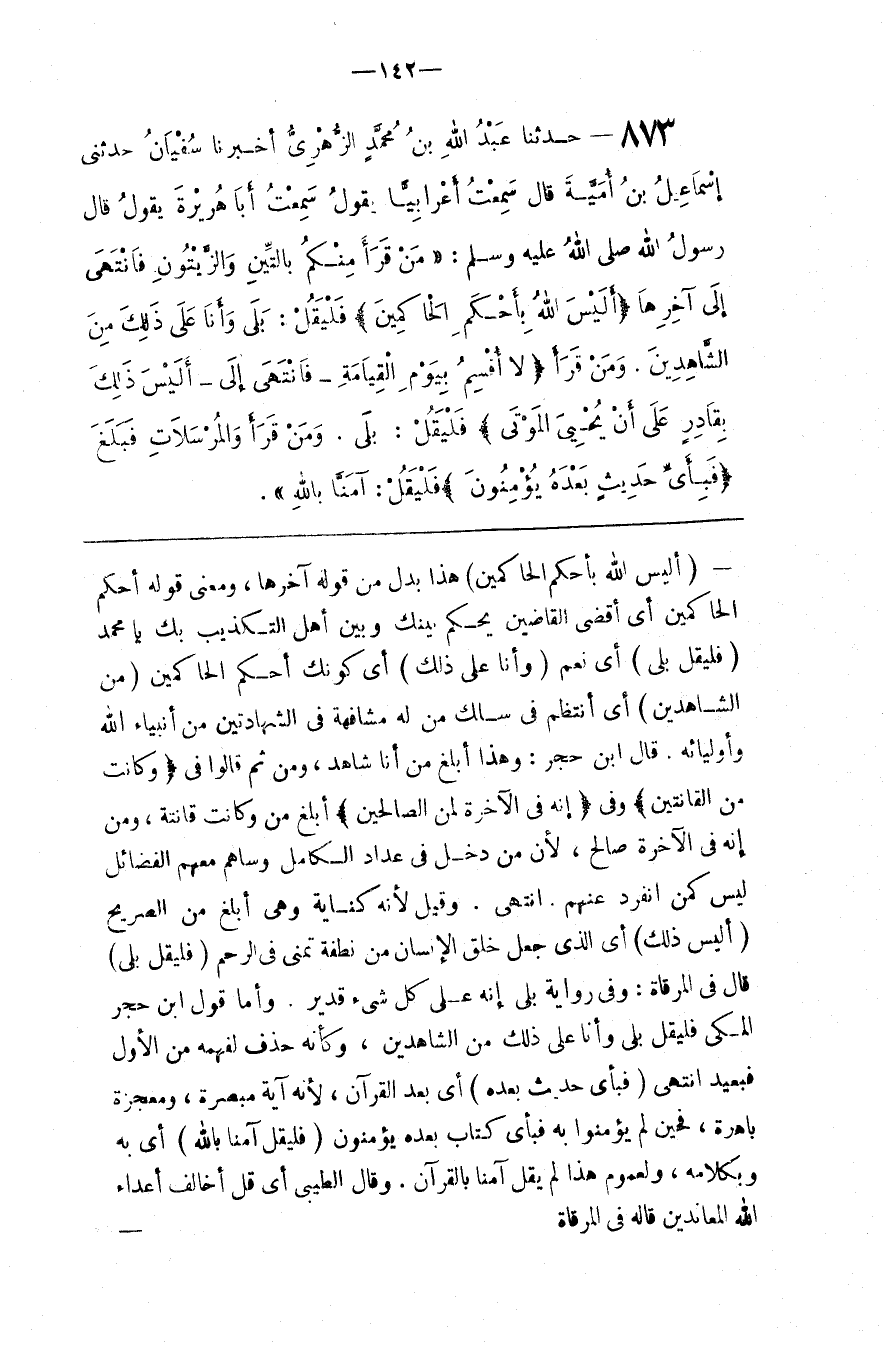 —١٤٢—
٨٧٣ — حـدثنا عَبْدُ اللهِ بنُ مُحمَّدٍ الزُّهْرِىُّ أخـبرنا سُفْيَانُ حدثنى
إسْمَاعِيلُ بنُ أُمَيَّـةَ قال سَمِعْتُ أعْرابِيًّـا يقولُ سَمِعْتُ أبَا هُريْرةَ يقولُ قال
رسولُ الله صلى اللهُ عليه وسـلم : « مَنْ قَرَأَ مِنْـكمُ بالتِّينِ وَالزَّيْتُونِ فانْتَهَى
إلَى آخرِهاَ ﴿أَلَيْسَ اللهُ بِأحْـكَمِ الْحَاكمِينَ﴾ فَلْيَقُلْ : بَلَى وَأَنا عَلَى ذَلِكَ مِنَ
الشَّاهِدِينَ . وَمَنْ قَرَأَ ﴿ لا أُقْسِمُ بِيَوْمِ الْقِيَامَةِ ـ فَانْتَهَى إلَى ـ أَلَيْسَ ذَلِكَ
بِقَادِرٍ عَلَى أَنْ يُحْـيِىَ المَوْتَى ﴾ فَلْيَقُلْ : بلَى . وَمَنْ قَرَأَ وَالمُرْسَلاَتِ فَبَلَغَ
﴿فَبِـأَىِّ حَدِيثٍ بَعْدَهُ يُؤْمِنُونَ ﴾فَلْيَقُلْ: آمَنَّا باللهِ » .
— ( أليس الله بأحكم الحاكمين) هذا بدل من قوله آخرها ، ومعنى قوله أحكم
الحاكمين أى أقضى القاضين يحـكم بينك وبين أهل التـكذيب بك يا محمد
( فليقل بلى ) أى نعم ( وأنا على ذلك ) أى كونك أحـكم الحاكمين ( من
الشـاهدين ) أى أنتظم فى سـالك من له مشافهة فى الشهادتين من أنبياء الله
وأوليائه . قال ابن حجر : وهذا أبلغ من أنا شاهد ، ومن ثم قالوا فى ﴿ وكانت
من القانتين﴾ وفى ﴿ إنه فى الآخرة لمن الصالحين ﴾ أبلغ من وكانت قانتة ، ومن
إنه فى الآخرة صالح ، لأن من دخـل فى عداد الـكامل وساهم معهم الفضائل
ليس كمن انفرد عنهم . انتهى . وقيل لأنه كنـاية وهى أبلغ من الصريح
( أليس ذلك) أى الذى جعل خلق الإنسان من نطفة تمنى فى الرحم ( فليقل بلى)
قال فى المرقاة : وفى رواية بلى إنه عـلى كل شىء قدير . وأما قول ابن حجر
المـكى فليقل بلى وأنا على ذلك من الشاهدين ، وكأنه حذف لفهمه من الأول
فبعيد انتهى ( فبأى حديث بعده ) أى بعد القرآن ، لأنه آية مبصرة ، ومعجزة
باهرة ، فحين لم يؤمنوا به فبأى كتاب بعده يؤمنون ( فليقل آمنا بالله ) أى به
وبكلامه ، ولعموم هذا لم يقل آمنا بالقرآن . وقال الطيبى أى قل أخالف أعداء
الله المعاندين قاله فى المرقاة —